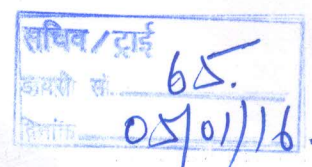 सचिव / ट्राई
डायरी सं. 65.
दिनांक 05/01/16.